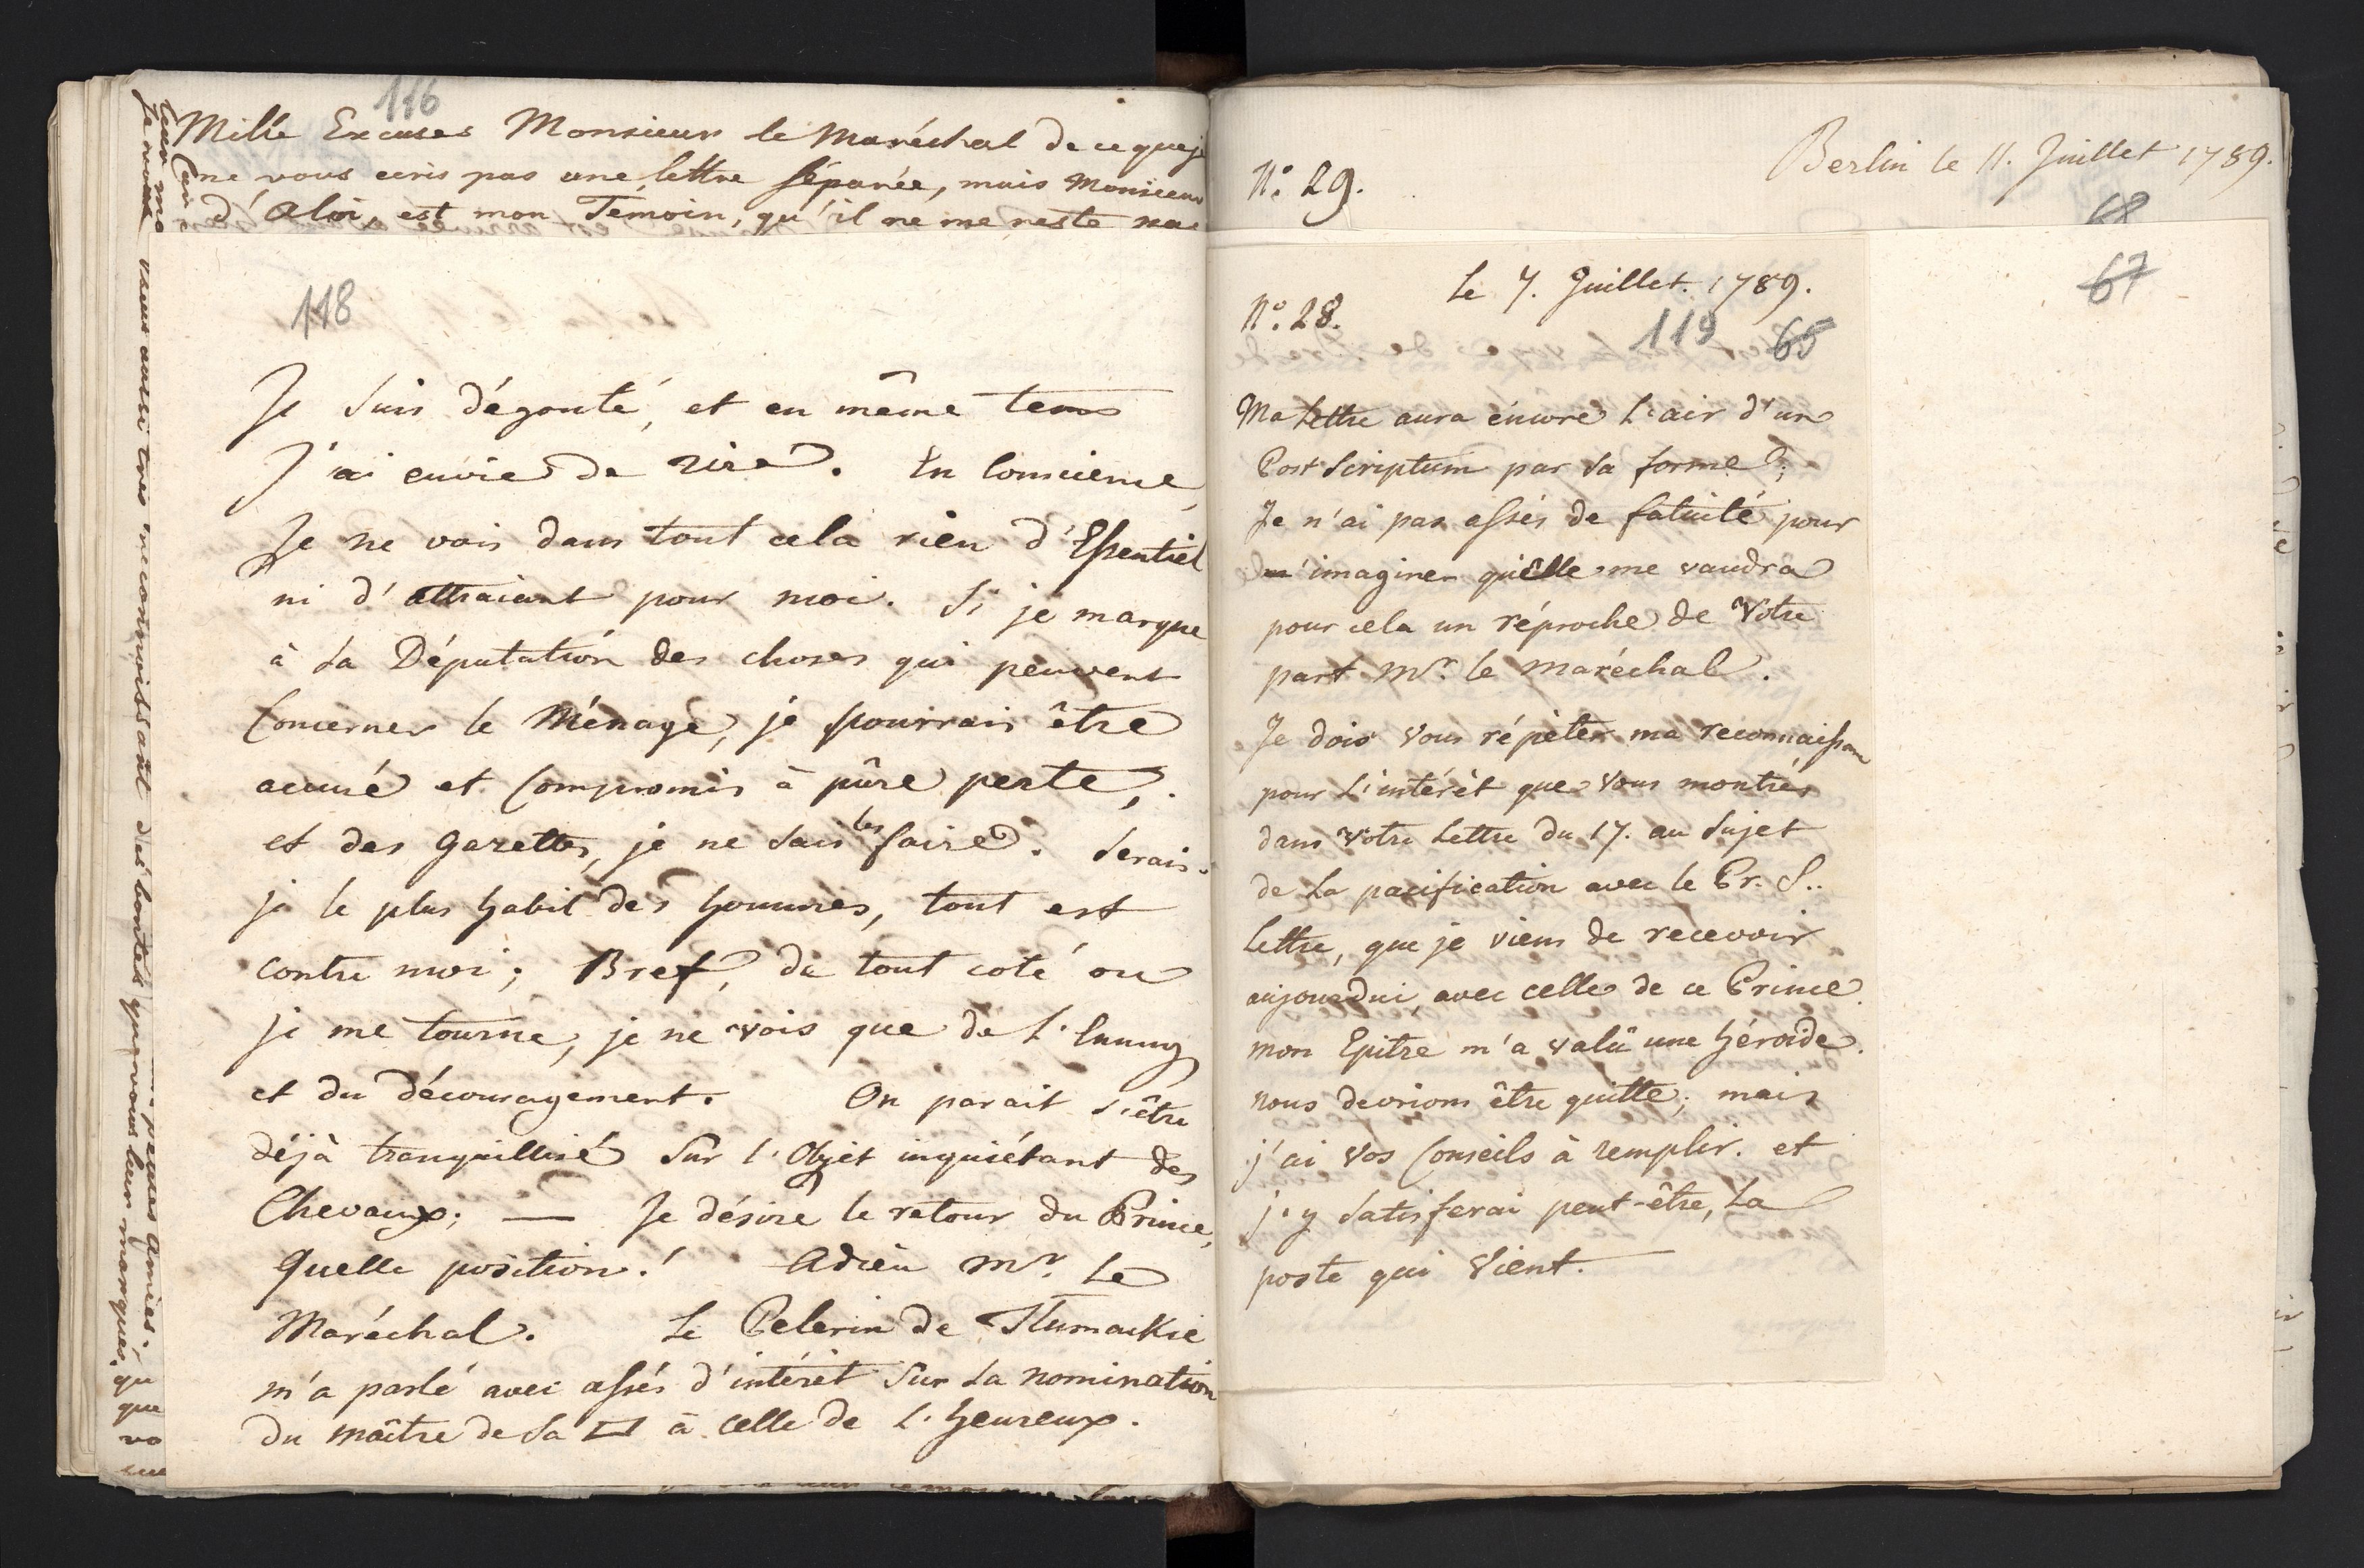 116
Mille Excuses Monsieur le Maréchal de ce que je
ne vous ecris pas une lettre séparée, mais Monsieur
d'Aloi, est mon Témoin, qu'il ne me reste
vous aussi tres reconnoissant des bontés que vous leur marqués.
peines amies.
118
Je suis dégouté, et en même tems
J'ai envie de rire. En Conscience,
Je ne vois dans tout cela rien d'Essentiel
ni d'attraiant pour moi. Si je marque
à la Députation des choses qui peuvent
Concerner le Ménage, je pourrais être
accusé et Compromis à pûre perte,
et des Gazettes, je ne sais les faire. Serais-
je le plus habil des hommes, tout est
contre moi; Bref, de tout coté ou
je me tourne, je ne vois que de l'Ennuy
et du découragement. On parait s'être
déjà tranquillisé sur l'Objet inquiétant des
Chevaux; — Je désire le retour du Prince,
Quelle position! Adieu Mr. Le
Maréchal. Le Pelerin de Tlumackie
m'a parlé avec assés d'intérêt sur la nomination
du Maître de la ▭ à celle de L'heureux.
Berlin le 11. Juillet 1789.
No. 29.
68
67
Le 7. Juillet. 1789.
No. 28.
119 65
Ma Lettre aura encore L'air d'un
Post Scriptum par sa forme;
Je n'ai pas assés de fatuité pour
m'imaginer qu'elle me vaudra
pour cela un réproche de Votre
part Mr. le Maréchal.
Je dois vous répéter ma reconnaissance
pour L'intérêt que vous montrés
dans Votre Lettre du 17. au sujet
de la pacification avec le Pr. S..
Lettre, que je viens de recevoir
aujourdui, avec celle de ce Prince.
mon Epitre m'a valû une héroïde.
nous devrions être quitte; mais
j'ai vos Conseils à remplir. et
j'y satisferai peut-être, La
poste qui vient.